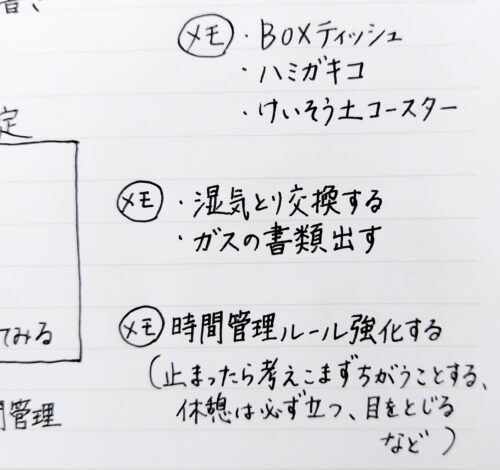 メモ ・BOXティッシュ
・ハミガキコ
・けいそう土コースター
定
メモ ・湿気とり交換する
・ガスの書類出す
てみる
メモ 時間管理ルール強化する
(止まったら考えこまずちがうことする、
休憩は必ず立つ、目をとじる
など)
間管理